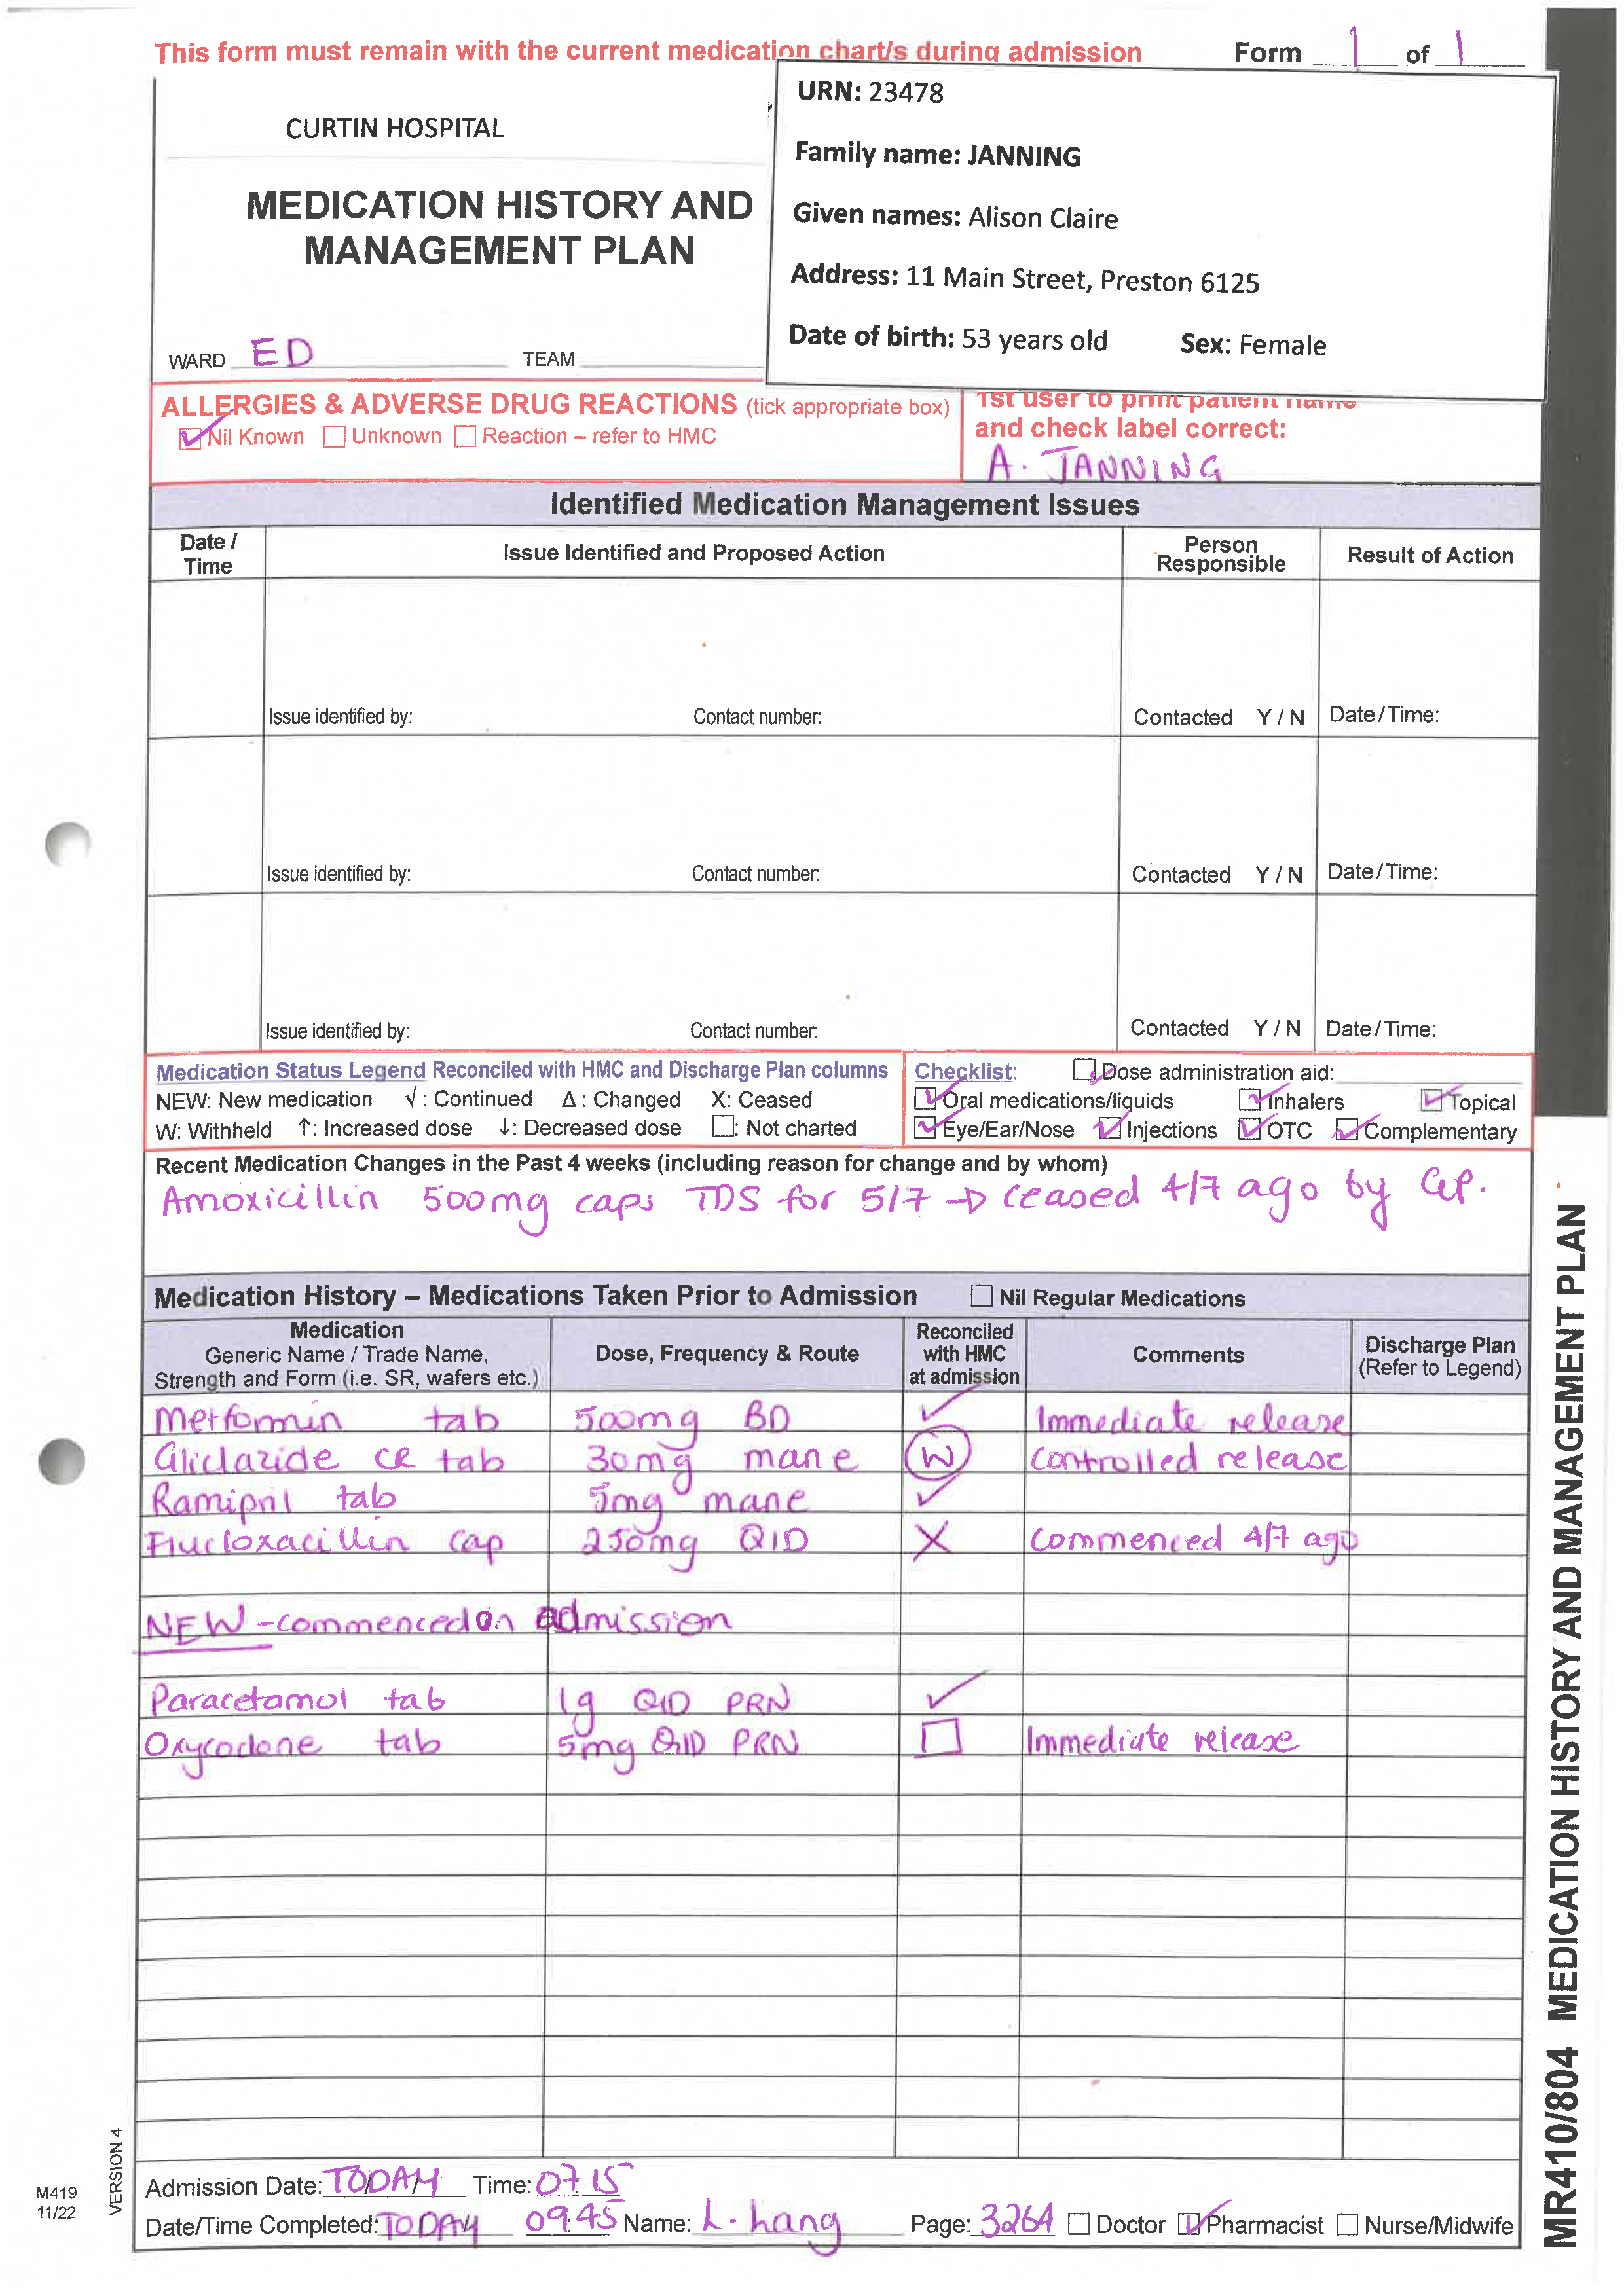 This form must remain with the current medication chart/s during admission Form 1 of 1
URN: 23478
CURTIN HOSPITAL
Family name: JANNING
MEDICATION HISTORY AND
MANAGEMENT PLAN
Given names: Alison Claire
Address: 11 Main Street, Preston 6125
Date of birth: 53 years old Sex: Female
WARD ED TEAM
ALLERGIES & ADVERSE DRUG REACTIONS (tick appropriate box)
Nil Known Unknown Reaction – refer to HMC
1st user to print patient name
and check label correct:
A. JANNING
Identified Medication Management Issues
Date / Time Issue Identified and Proposed Action Person Responsible Result of Action
Issue identified by: Contact number: Contacted Y / N Date/Time:
Issue identified by: Contact number: Contacted Y / N Date/Time:
Issue identified by: Contact number: Contacted Y / N Date/Time:
Medication Status Legend Reconciled with HMC and Discharge Plan columns
NEW: New medication √ : Continued Δ : Changed X: Ceased
W: Withheld ↑: Increased dose ↓: Decreased dose ☐: Not charted
Checklist: Dose administration aid:
Oral medications/liquids Inhalers Topical
Eye/Ear/Nose Injections OTC Complementary
Recent Medication Changes in the Past 4 weeks (including reason for change and by whom)
Amoxicillin 500mg caps TDS for 5/7 → ceased 4/7 ago by GP.
Medication History – Medications Taken Prior to Admission Nil Regular Medications
Medication
Generic Name / Trade Name,
Strength and Form (i.e. SR, wafers etc.)
Dose, Frequency & Route
Reconciled
with HMC
at admission
Comments
Discharge Plan
(Refer to Legend)
Metformin tab 500mg BD ✓ Immediate release
Gliclazide CR tab 30mg mane W controlled release
Ramipril tab 5mg mane ✓
Flucloxacillin cap 250mg QID X commenced 4/7 ago
NEW - commenced on admission
Paracetamol tab 1g QID PRN ✓
Oxycodone tab 5mg QID PRN ☐ Immediate release
Admission Date: TODAY Time: 07.15
Date/Time Completed: TODAY 09:45 Name: L. hang Page: 3264 Doctor Pharmacist Nurse/Midwife
M419
11/22
VERSION 4
MR410/804 MEDICATION HISTORY AND MANAGEMENT PLAN